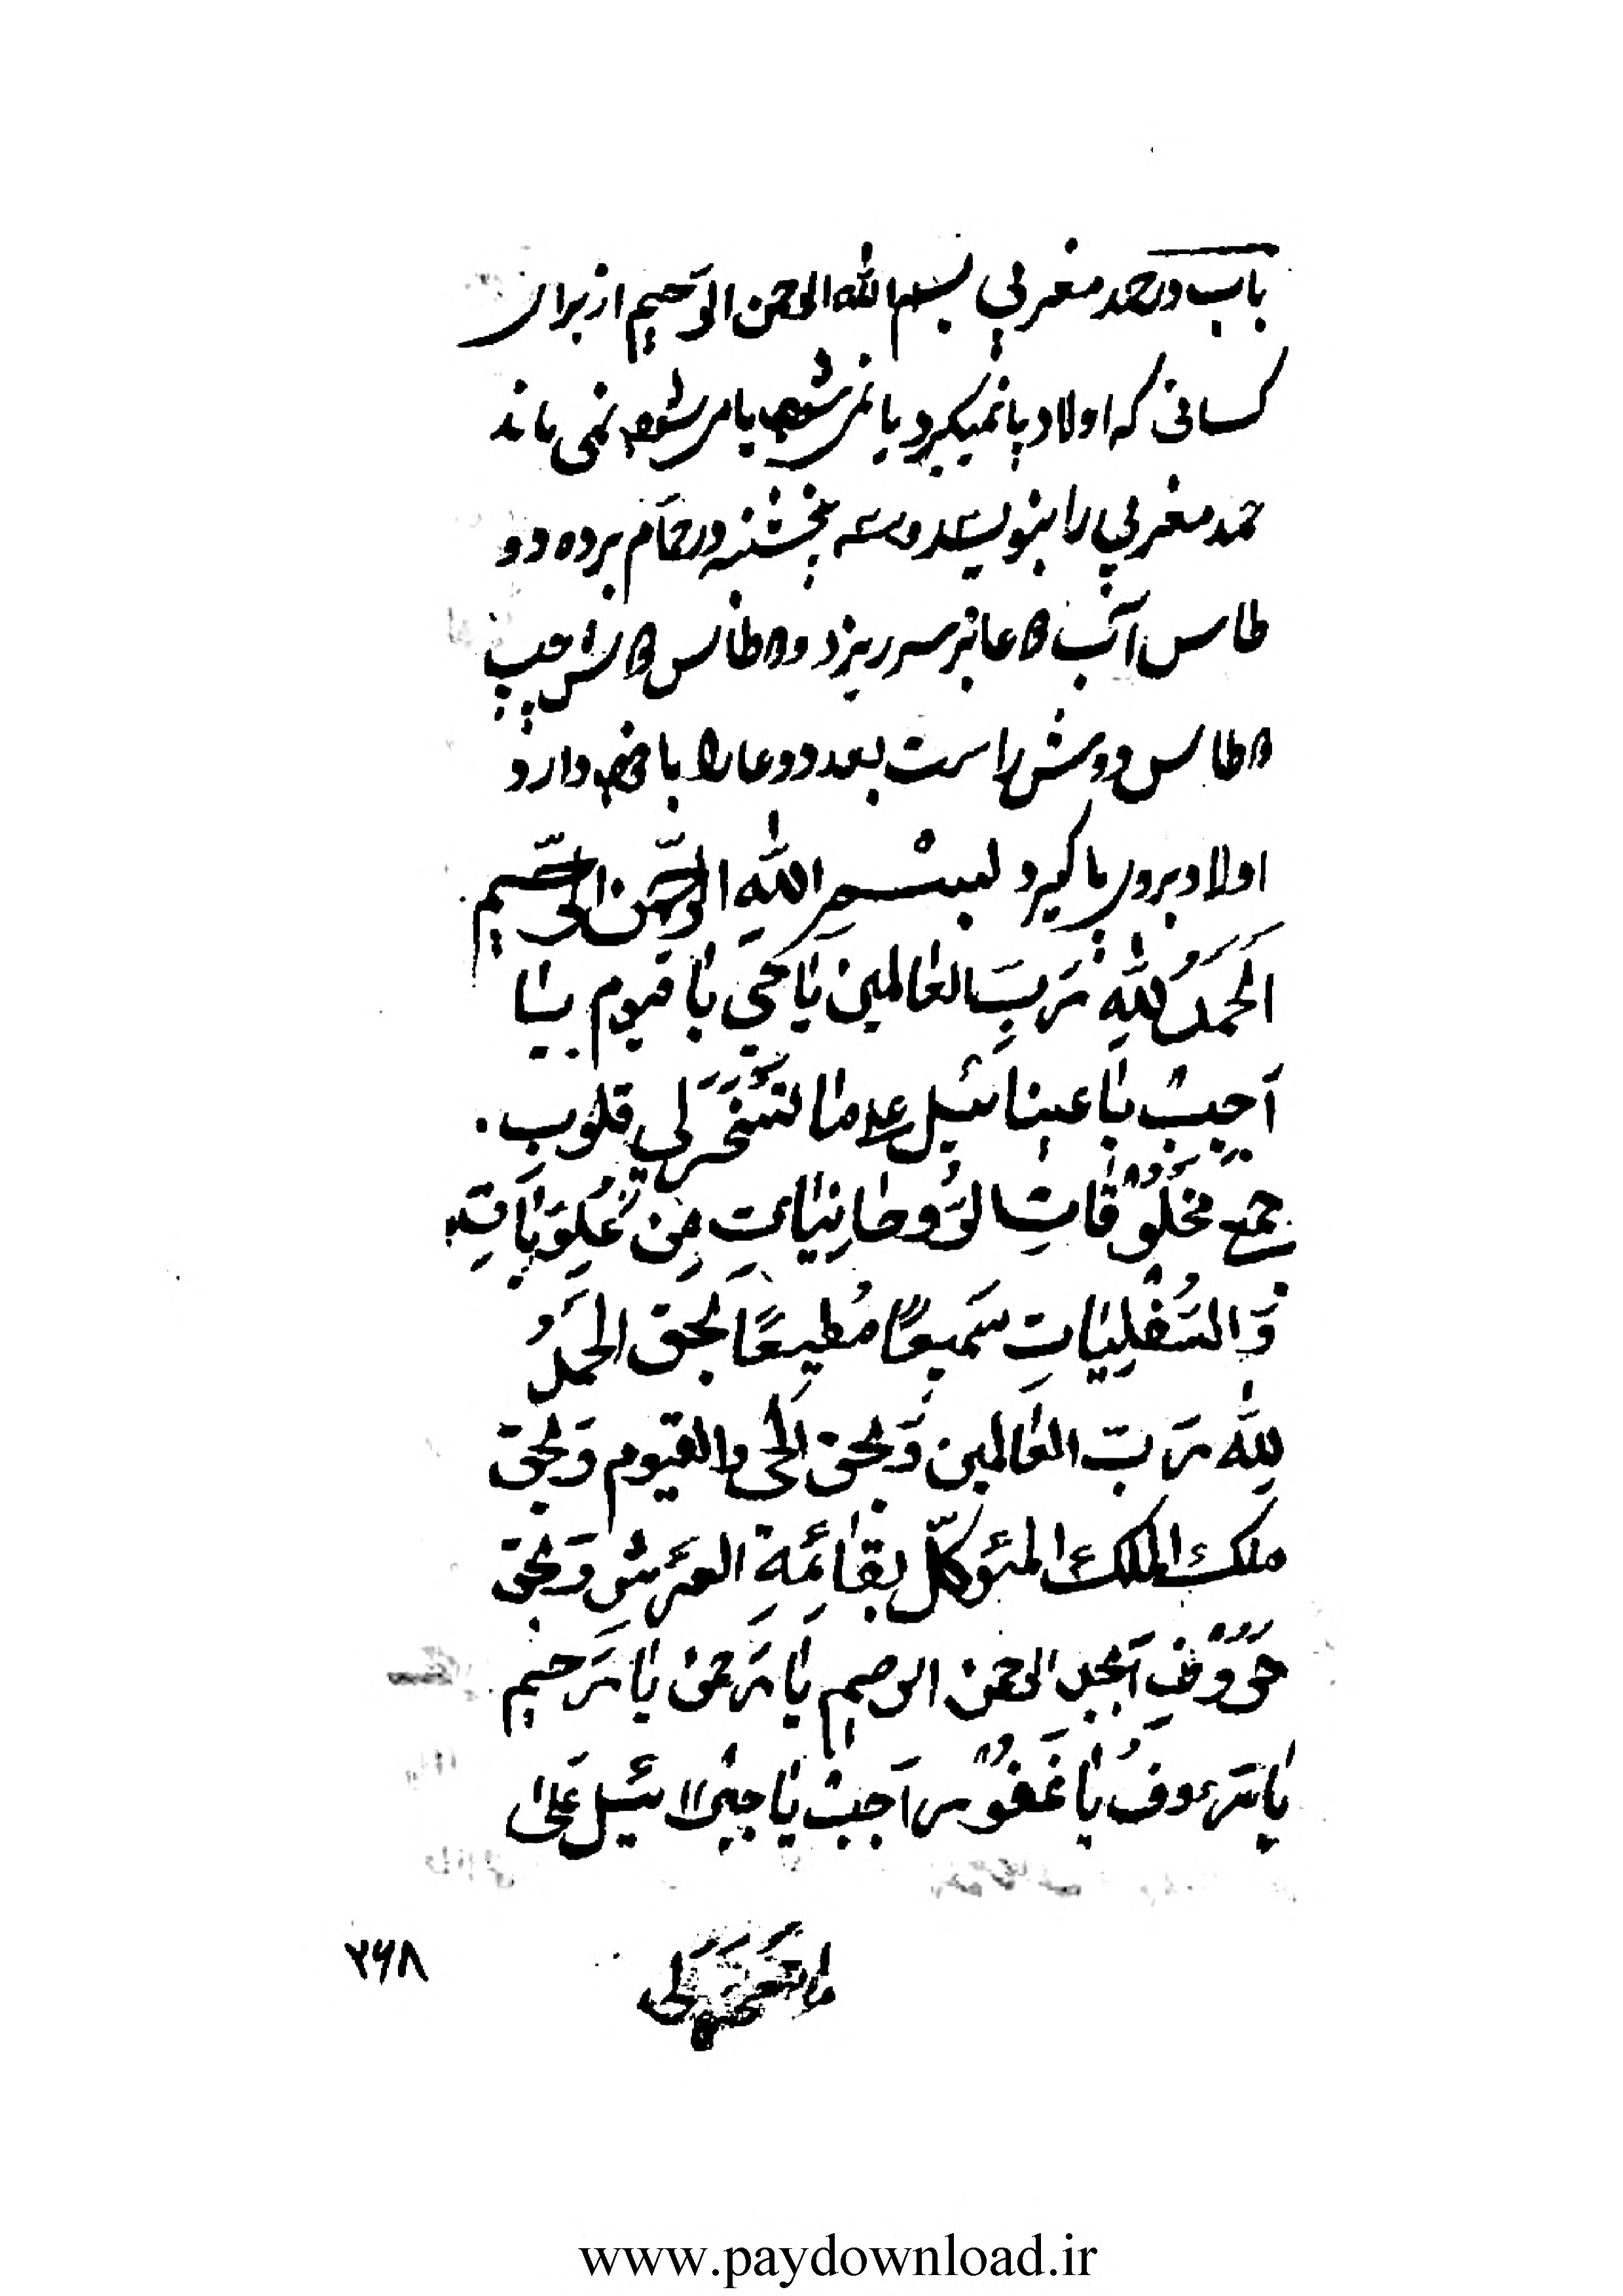 باب در حمد مغربي بسم الله الرحمن الرّحيم از براى
كسانى كه اولاد پا نميگيرد يا نمى شود يا مى شود نمى ماند
حمد مغربي را بنويسد و سه پنجشنبه در حمّام برده دو
طاس آب دعا بر سر ريزد و طاس دوش چپ
طاس دوش راست بعد دعا را با خود دارد
اولاد بروى پا گيرد بِسْمِ اللهِ الرَّحمن الرَّحيم
اَلحَمدُ لِلّٰهِ رَبِّ العٰالمين يٰا حَيّ يٰا قيوم
اَجِبْ يٰا عينائيل لِي قلوب
جميع مَخْلُوْقٰاتِ الرُّوحٰانِيّٰاتِ مِن عُلِويّٰاتِ
وَ السُفْلِيّٰاتِ سَميعًا مُطيعًا بحق الحمَدُ
لِلّٰه رَبّ العٰالمين وَ بحق الحى والقيوم وَ بحق
ملك الملك المئوكّل بِقٰائِمَةِ العَرَشِ وَ بحق
حُرُوْفِ اَبجد الرحمن الرحيم يٰا رَحمن يٰا رَحيم
يٰا رَءوفُ يٰا غَفُوْر اَجِبْ يٰا جبرائيل
۲۶۸
www.paydownload.ir